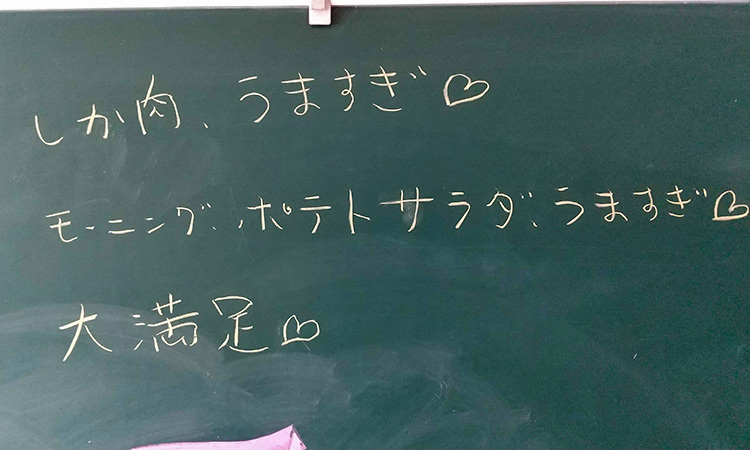 しか肉、うますぎ♡
モーニング、ポテトサラダ、うますぎ♡
大満足♡